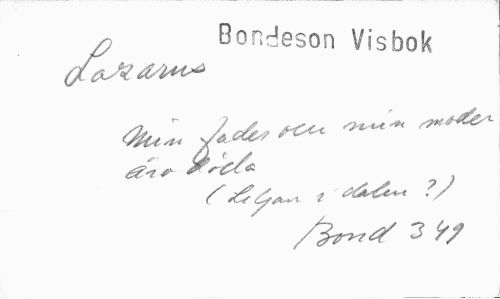 Bondeson Visbok
Lazarus
Min fader och min moder
äro döda
(Liljan i dalen?)
Bond 349